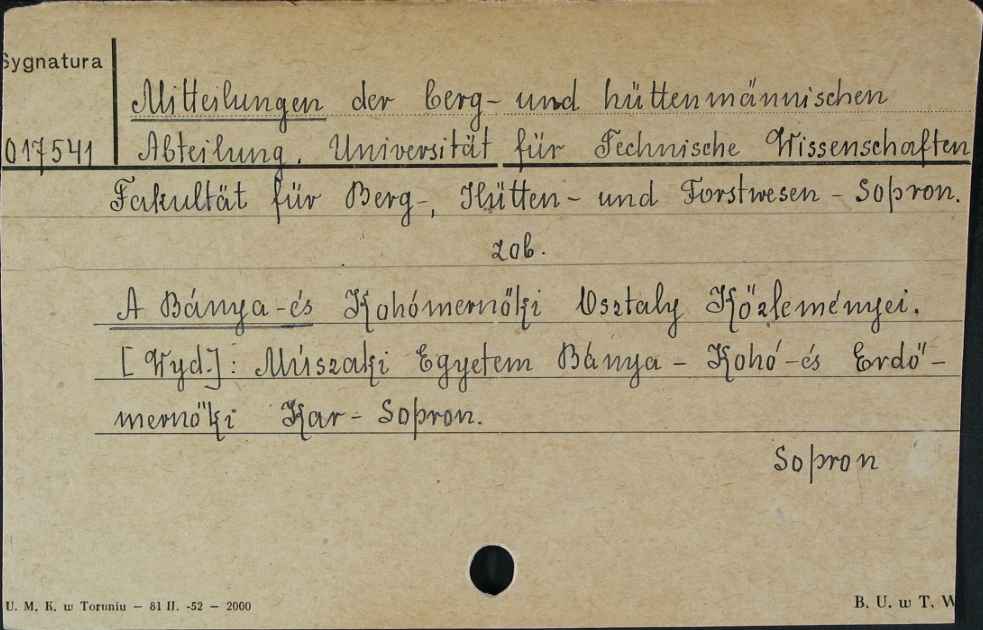 Sygnatura
Mitteilungen der berg- und hüttenmännischen
017541 Abteilung. Universität für Technische Wissenschaften
Fakultät für Berg-, Hütten- und Forstwesen - Sopron.
zob.
A Bánya-és Kohómernőki Osztaly Közleményei.
[Wyd.]: Múszaki Egyetem Bánya - Kohó-és Erdő-
mernőki Kar - Sopron.
Sopron
U. M. K. w Toruniu — 81 II. -52 — 2000
B. U. w T. W